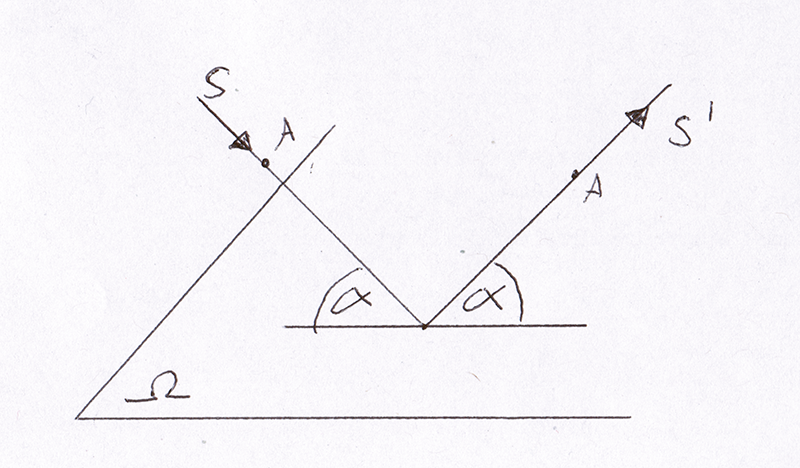 S
A
S'
A
α
α
Ω